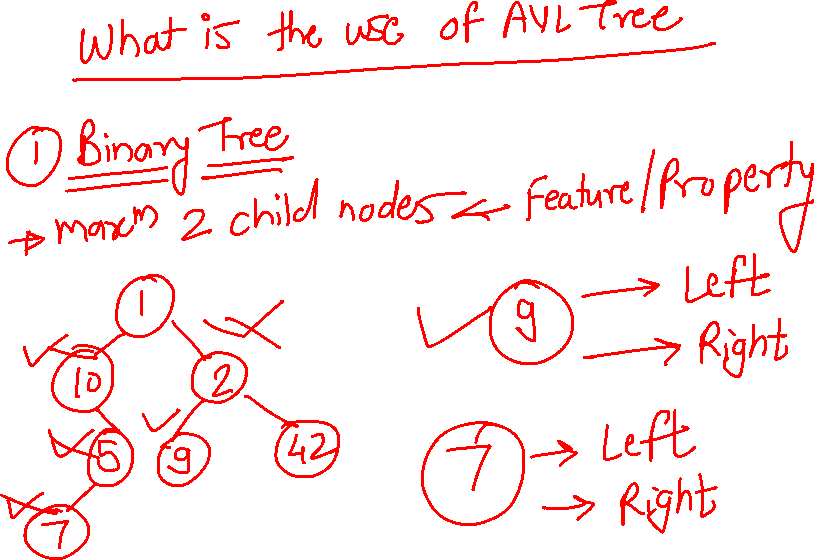 What is the use of AVL Tree
① Binary Tree
→ maxm 2 child nodes ← Feature/Property
1
10 2
5 9 42
7
9 → Left
→ Right
7 → Left
→ Right